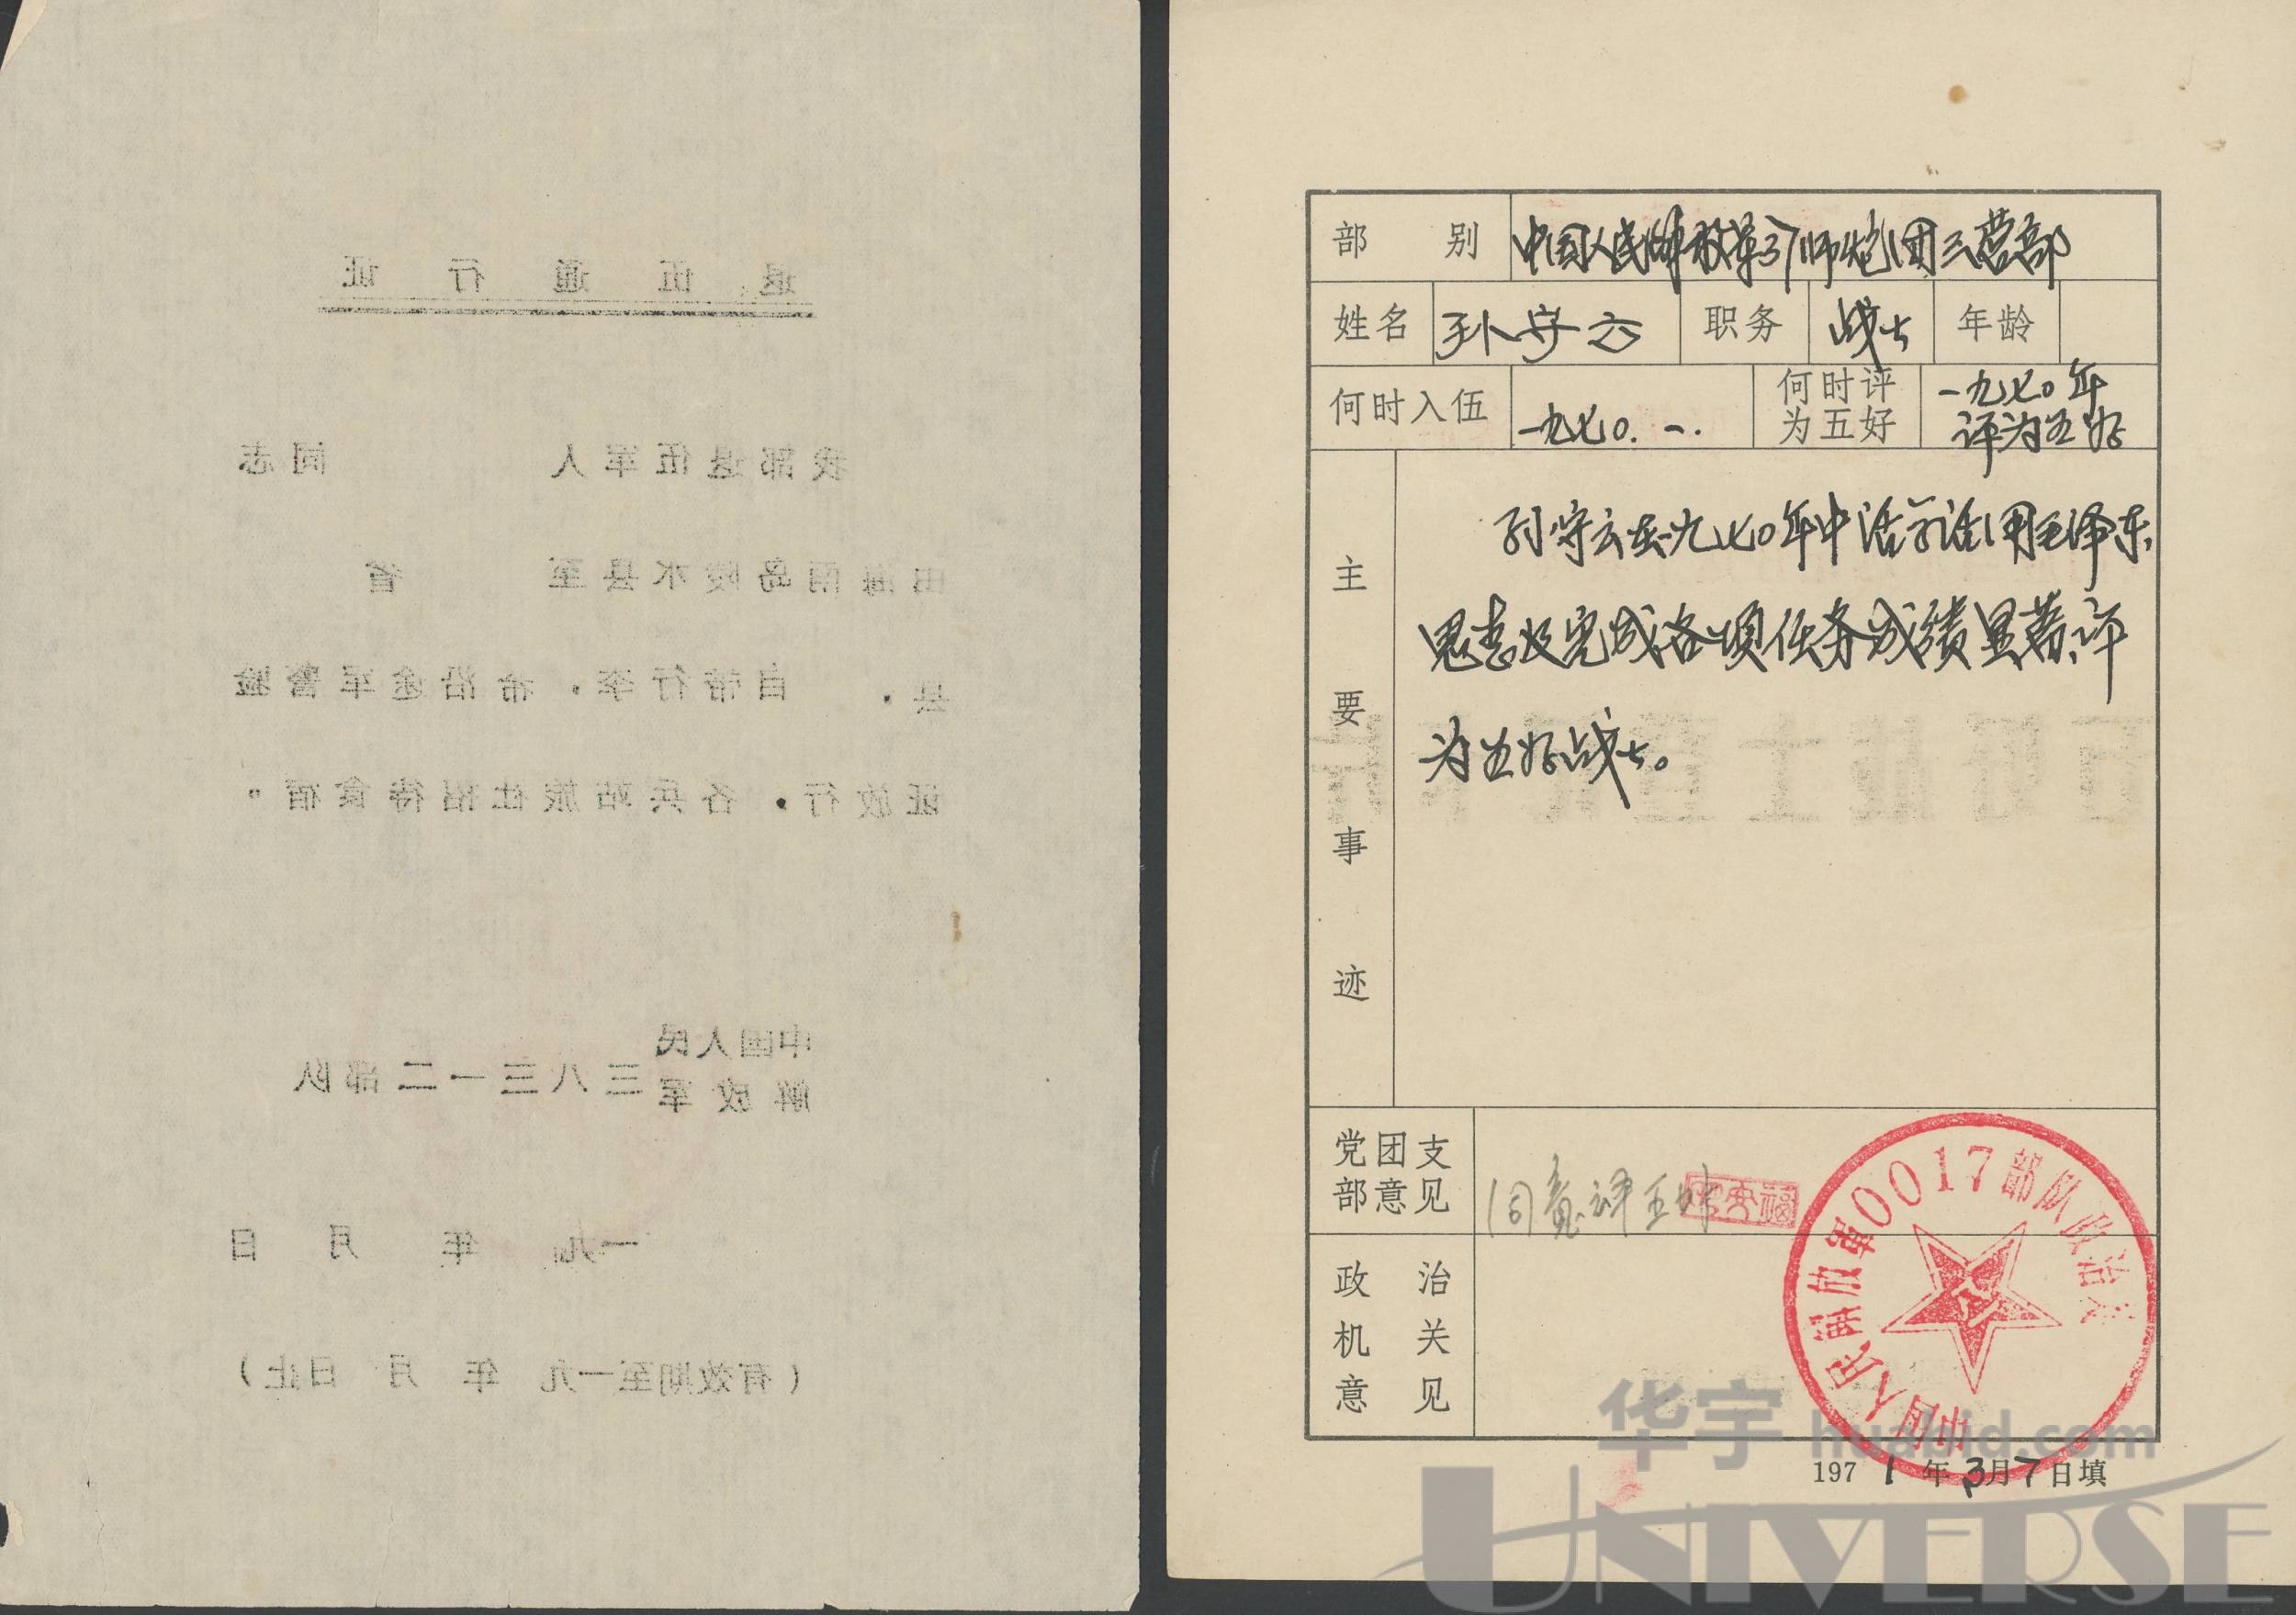 退伍通行证
我部退伍军人 同志
由海南岛陵水县至 省
县. 自带行李. 希沿途军警验
证放行. 各兵站旅社招待食宿。
中国人民
解放军
三八三一二部队
一九 年 月 日
(有效期至一九 年 月 日止)
部别 中国人民解放军 师炮团三营部
姓名 孙守云 职务 战士 年龄
何时入伍 一九七〇.一. 何时评为五好 一九七〇年评为五好
主要事迹
孙守云在一九七〇年中活学活用毛泽东
思想及完成各项任务成绩显著,评
为五好战士。
党团支部意见 同意评五好
政治机关意见
中国人民解放军0017部队政治处
1971年3月7日填
华宇 huabid.com
UNIVERSE